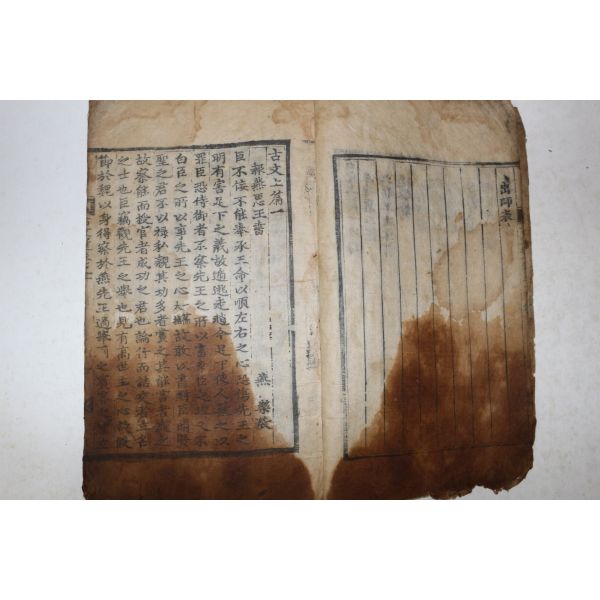 出師表
古文上篇一
報燕惠王書 燕 樂毅
臣不佞不能奉承王命以順左右之心恐傷先王之
明有害足下之義故遁逃走趙今足下使人數之以
罪臣恐侍御者不察先王之所以畜幸臣之理又不
白臣之所以事先王之心故敢以書對臣聞賢
聖之君不以祿私親其功多者賞之其能當者處之
故察能而授官者成功之君也論行而結交者立名
之士也臣竊觀先王之擧也見有高世主之心故假
節於魏以身得察於燕先王過擧之賓客之中立